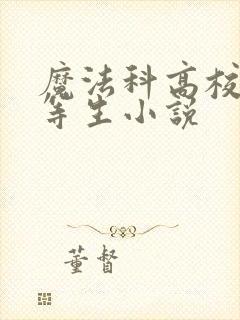 魔法科高校
等生小説
董督